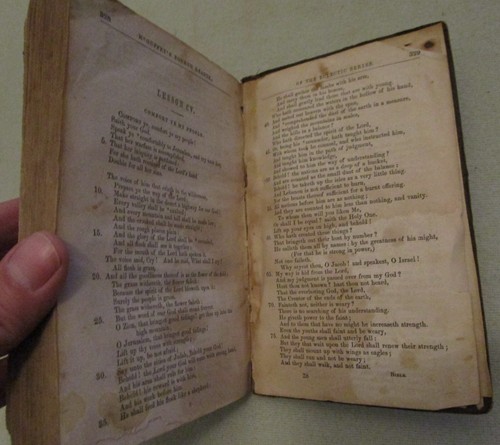 McGUFFEY'S
LESSON CV.
COMFORT YE MY PEOPLE.
COMFORT ye, comfort ye my people!
Saith your God.
Speak ye comfortably to Jerusalem, and cry unto her,
5. That her warfare is accomplished,
That her iniquity is pardoned,
For she hath received of the Lord's hand
Double for all her sins.
The voice of him that crieth in the wilderness,
10. Prepare ye the way of the Lord,
Make straight in the desert a highway for our God.
Every valley shall be exalted,
And every mountain and hill shall be made low;
And the crooked shall be made straight,
And the rough places plain.
15. And the glory of the Lord shall be revealed,
And all flesh shall see it together;
For the mouth of the Lord hath spoken it.
The voice said, Cry! And he said, What shall I cry?
All flesh is grass,
20. And all the goodliness thereof is as the flower of the field.
The grass withereth, the flower fadeth,
Because the spirit of the Lord bloweth upon it:
Surely the people is grass.
The grass withereth, the flower fadeth,
25. But the word of our God shall stand forever.
O Zion, that bringest good tidings! get thee up into the
high mountain;
O Jerusalem, that bringest good tidings!
Lift up thy voice with strength;
Lift it up, be not afraid;
Say unto the cities of Judah, Behold your God!
30. Behold! the Lord your God will come with strong hand,
And his arm shall rule for him:
Behold! his reward is with him,
And his work before him.
35. He shall feed his flock like a shepherd:
OF THE ECLECTIC SERIES
329
He shall gather the lambs with his arm,
And carry them in his bosom,
And shall gently lead those that are with young.
Who hath measured the waters in the hollow of his hand,
And meted out heaven with the span,
And comprehended the dust of the earth in a measure,
And weighed the mountains in scales,
And the hills in a balance?
Who hath directed the Spirit of the Lord,
Or, being his counselor, hath taught him?
With whom took he counsel, and who instructed him,
And taught him in the path of judgment,
And taught him knowledge,
And showed to him the way of understanding?
Behold! the nations are as a drop of a bucket,
And are counted as the small dust of the balance:
Behold! he taketh up the isles as a very little thing.
And Lebanon is not sufficient to burn,
Nor the beasts thereof sufficient for a burnt offering.
All nations before him are as nothing;
And they are counted to him less than nothing, and vanity.
To whom then will you liken Me,
Or shall I be equal? saith the Holy One.
Lift up your eyes on high, and behold!
Who hath created these things?
That bringeth out their host by number?
He calleth them all by names: by the greatness of his might,
(For that he is strong in power,)
Not one faileth.
Why sayest thou, O Jacob! and speakest, O Israel!
My way is hid from the Lord,
And my judgment is passed over from my God?
Hast thou not known? hast thou not heard,
That the everlasting God, the Lord,
The Creator of the ends of the earth,
Fainteth not, neither is weary?
There is no searching of his understanding.
He giveth power to the faint;
And to them that have no might he increaseth strength.
Even the youths shall faint and be weary,
And the young men shall utterly fall:
But they that wait upon the Lord shall renew their strength;
They shall mount up with wings as eagles;
They shall run and not be weary;
And they shall walk, and not faint.
28
BIBLE.